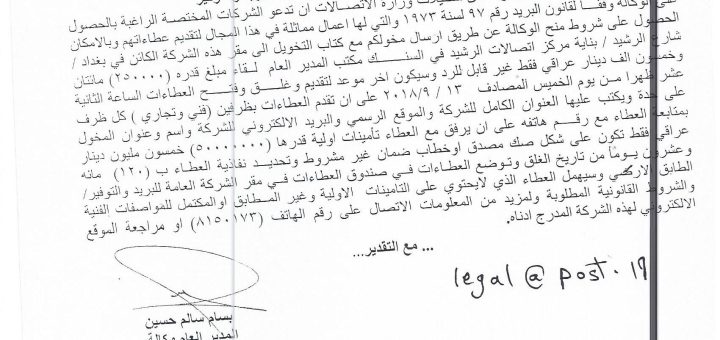 الوكالة وفقا لقانون البريد رقم ٩٧ لسنة ١٩٧٣ والتي لها اعمال مماثلة في هذا المجال لتقديم عطاءاتهم وبالامكان
وزارة الاتصالات ان تدعو الشركات المختصة الراغبة بالحصول
الحصول على شروط منح الوكالة عن طريق ارسال مخولكم مع كتاب التخويل الى مقر هذه الشركة الكائن في بغداد /
شارع الرشيد / بناية مركز اتصالات الرشيد في السنك مكتب المدير العام لقاء مبلغ قدره (٢٥٠٠٠٠) مائتان
وخمسون الف دينار عراقي فقط غير قابل للرد وسيكون اخر موعد لتقديم وغلق وفتح العطاءات الساعة الثانية
عشر ظهرا من يوم الخميس المصادف ١٣ / ٩ / ٢٠١٨ على ان تقدم العطاءات بظرفين (فني وتجاري) كل ظرف
على حدة ويكتب عليها العنوان الكامل للشركة والموقع الرسمي والبريد الالكتروني للشركة واسم وعنوان المخول
بمتابعة العطاء مع رقم هاتفه على ان يرفق مع العطاء تأمينات اولية قدرها (٥٠٠٠٠٠٠٠) خمسون مليون دينار
عراقي فقط تكون على شكل صك مصدق اوخطاب ضمان غير مشروط وتحديد نفاذية العطاء ب (١٢٠) مائه
وعشرون يوماً من تاريخ الغلق وتوضع العطاءات في صندوق العطاءات في مقر الشركة العامة للبريد والتوفير/
الطابق الارضي وسيهمل العطاء الذي لايحتوي على التامينات الاولية وغير المطابق اوالمكتمل للمواصفات الفنية
والشروط القانونية المطلوبة ولمزيد من المعلومات الاتصال على رقم الهاتف (٨١٥٠١٧٣) او مراجعة الموقع
الالكتروني لهذه الشركة المدرج ادناه.
... مع التقدير...
legal @ post . iq
بسام سالم حسين
المدير العام وكالة